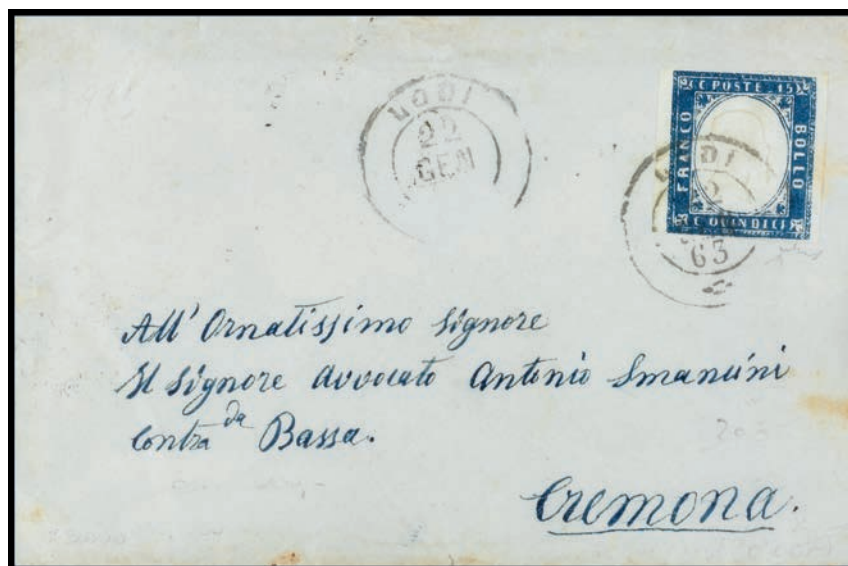 LODI
22
GEN
C. POSTE. 15
FRANCO
BOLLO
C. QUINDICI
LODI
63
All' Ornatissimo Signore
Il Signore Avvocato Antonio Smancini
Contra da Bassa.
Cremona.